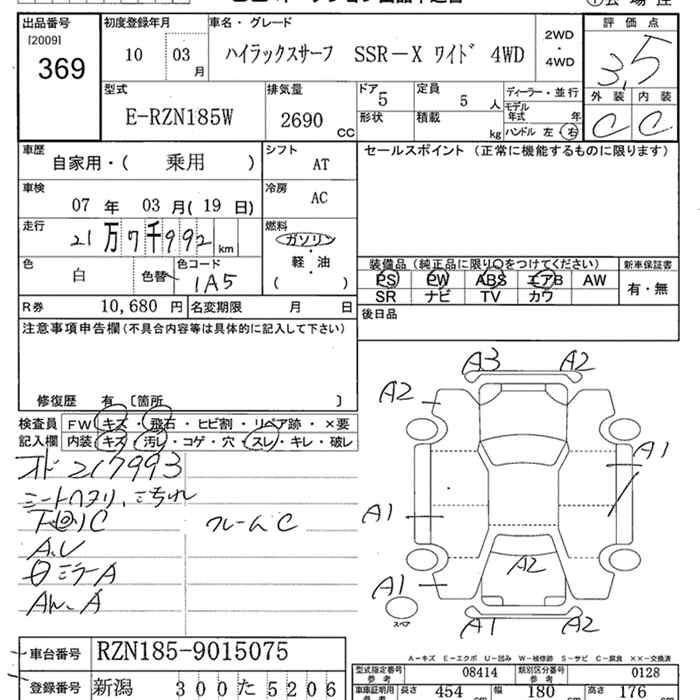 出品番号 初度登録年月 車名・グレード 評価点
[2009] 369 10 03 月 ハイラックスサーフ SSR-X ワイド 4WD 2WD・4WD 3,5
外装 内装
C C
型式 E-RZN185W 排気量 2690 CC ドア 5 定員 5 人 ディーラー・並行
形状 積載 kg モデル年式 年
ハンドル 左 右
車歴 自家用・( 乗用 ) シフト AT セールスポイント (正常に機能するものに限ります)
車検 07 年 03 月(19 日) 冷房 AC
走行 21万7千992 km 燃料 ガソリン
軽・油
( )
色 白 色替 色コード 1A5
装備品(純正品に限り○をつけてください) 新車保証書
PS PW ABS エアB AW 有・無
SR ナビ TV カワ
R券 10,680 円 名変期限 月 日 後日品
注意事項申告欄(不具合内容等は具体的に記入して下さい)
修復歴 有 〔箇所 〕
検査員記入欄 FW キズ・飛石・ヒビ割・リペア跡・×要
内装 キズ・汚レ・コゲ・穴・スレ・キレ・破レ
217993
下回リC フレームC
A.V
ミラーA
A3 A2
A2
A1
A1
A2
A1
A1 A2
スペア
A-キズ E-エクボ U-凹み W-補修跡 S-サビ C-腐食 ××-交換済
車台番号 RZN185-9015075
登録番号 新潟 300 た 5206
型式指定番号 参考 08414 類別区分番号 参考 0128
車庫証明用 参考 長さ 454 幅 180 高さ 176